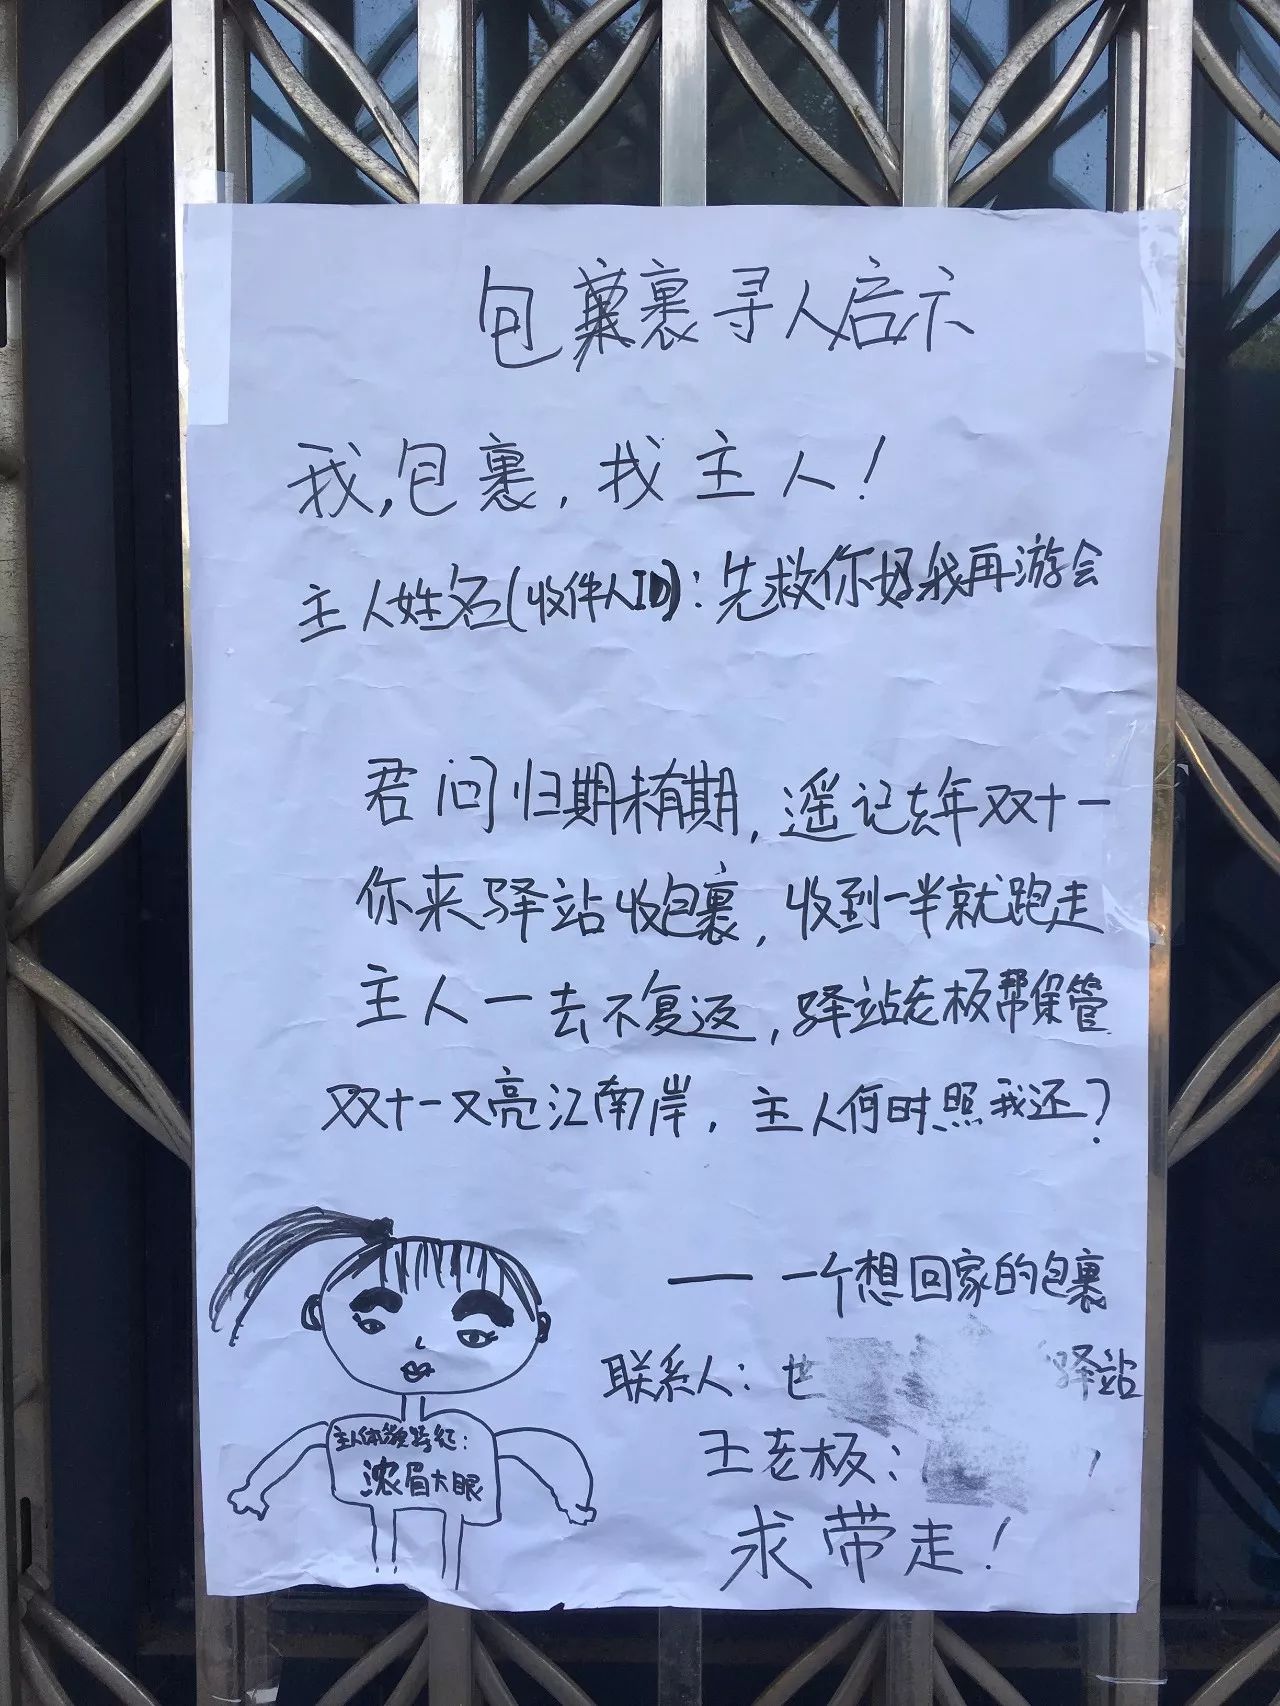 包裹寻人启示
我,包裹,找主人!
主人姓名(收件人ID):先救你妈我再游会
君问归期未有期,遥记去年双十一
你来驿站收包裹,收到一半就跑走
主人一去不复返,驿站老板帮保管
双十一又亮江南岸,主人何时照我还?
——一个想回家的包裹
联系人:世 驿站
王老板:
求带走!
主人体貌特征:
浓眉大眼